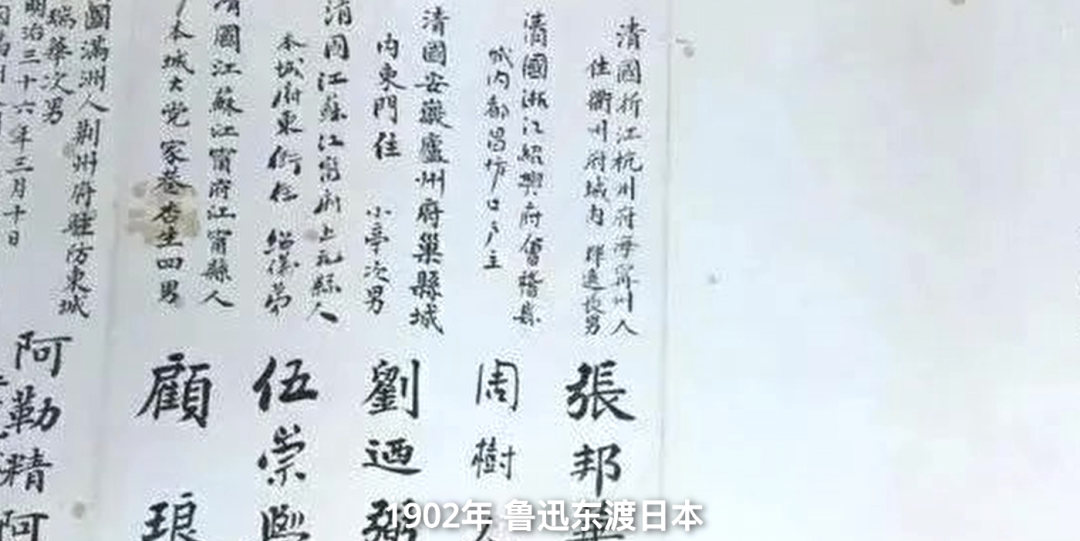 清國折江杭州府海寧州人
住衢州府城内 ​長男
張邦華
清國浙江紹興府會稽縣
城内都昌坊口戶主
周樹人
清國安徽廬州府巢縣城
内東門住 小亭次男
劉迺弼
清國江蘇江甯府上元縣人
本城府東街住 紹儀弟
伍崇熙
清國江蘇江甯府江甯縣人
本城大党家巷 杏生四男
顧琅
國滿洲人荊州府駐防東城
瑞華次男
明治三十六年三月十日
阿勒精阿
1902年 鲁迅东渡日本